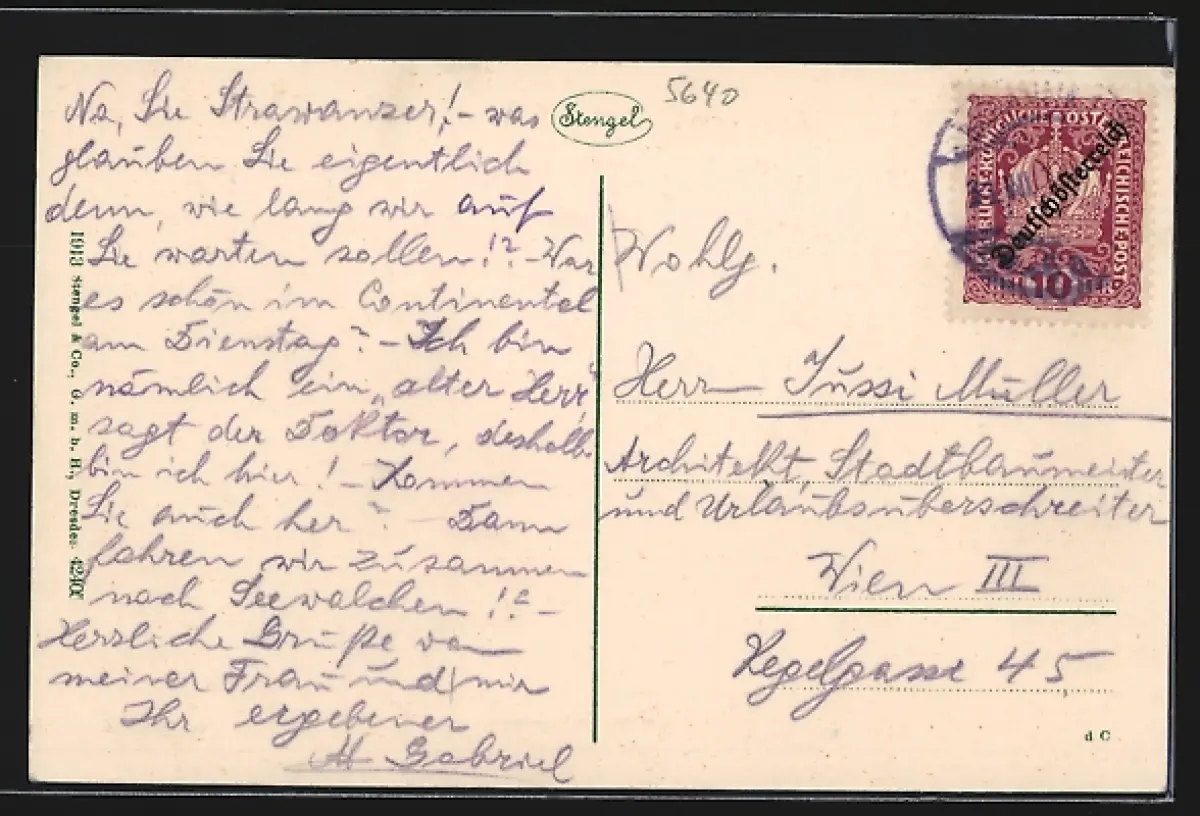 Na, Sie Strawanzer! - was
glauben Sie eigentlich
denn, wie lang wir auf
Sie warten sollen!? - War
es schön im Continental
am Dienstag? - Ich bin
nämlich ein „alter Herr"
sagt der Doktor, deshalb
bin ich hier! - Kommen
Sie auch her? - Dann
fahren wir zusammen
nach Seewalchen!? -
Herzliche Grüße von
meiner Frau und mir
Ihr ergebener
Gabriel
1913 Stengel & Co., G. m. b. H., Dresden 42400
Stengel
5640
Deutschösterreich
10
Wohlg.
Herrn Jussi Müller
Architekt, Stadtbaumeister
und Urlaubsüberschreiter
Wien III
Kegelgasse 45
d C